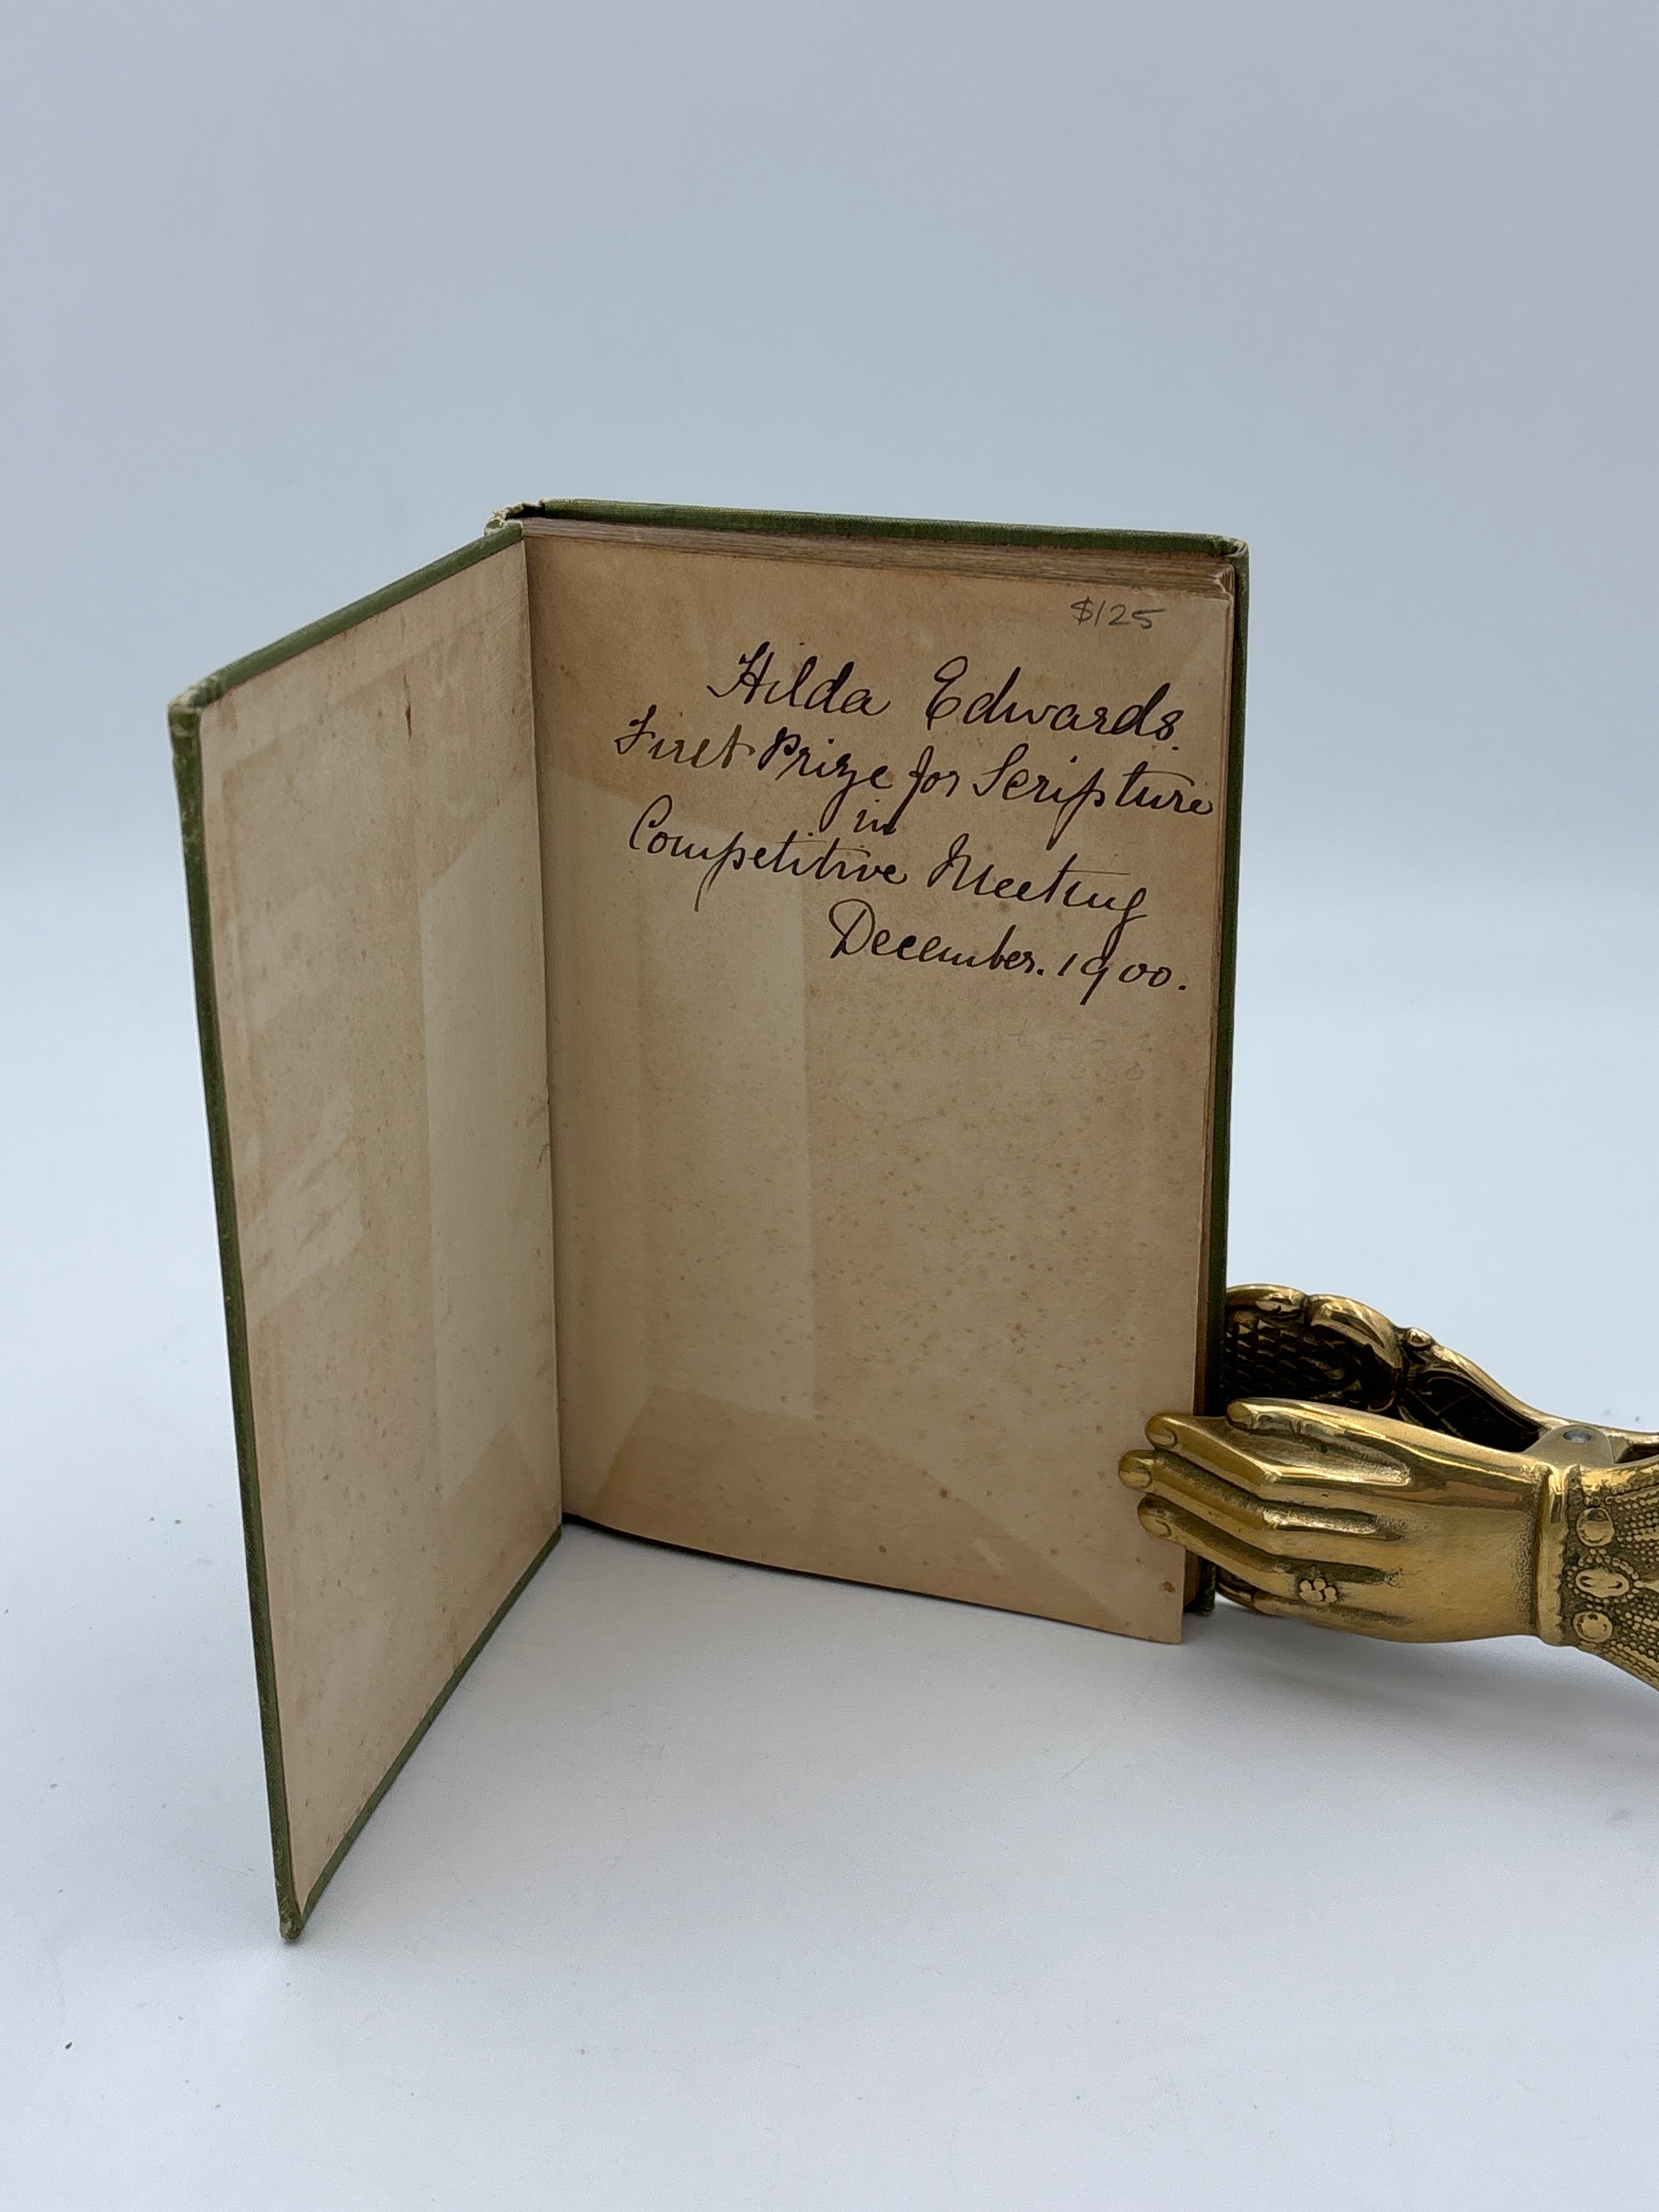 $125
Hilda Edwards.
First Prize for Scripture
in
Competitive Meeting
December. 1900.